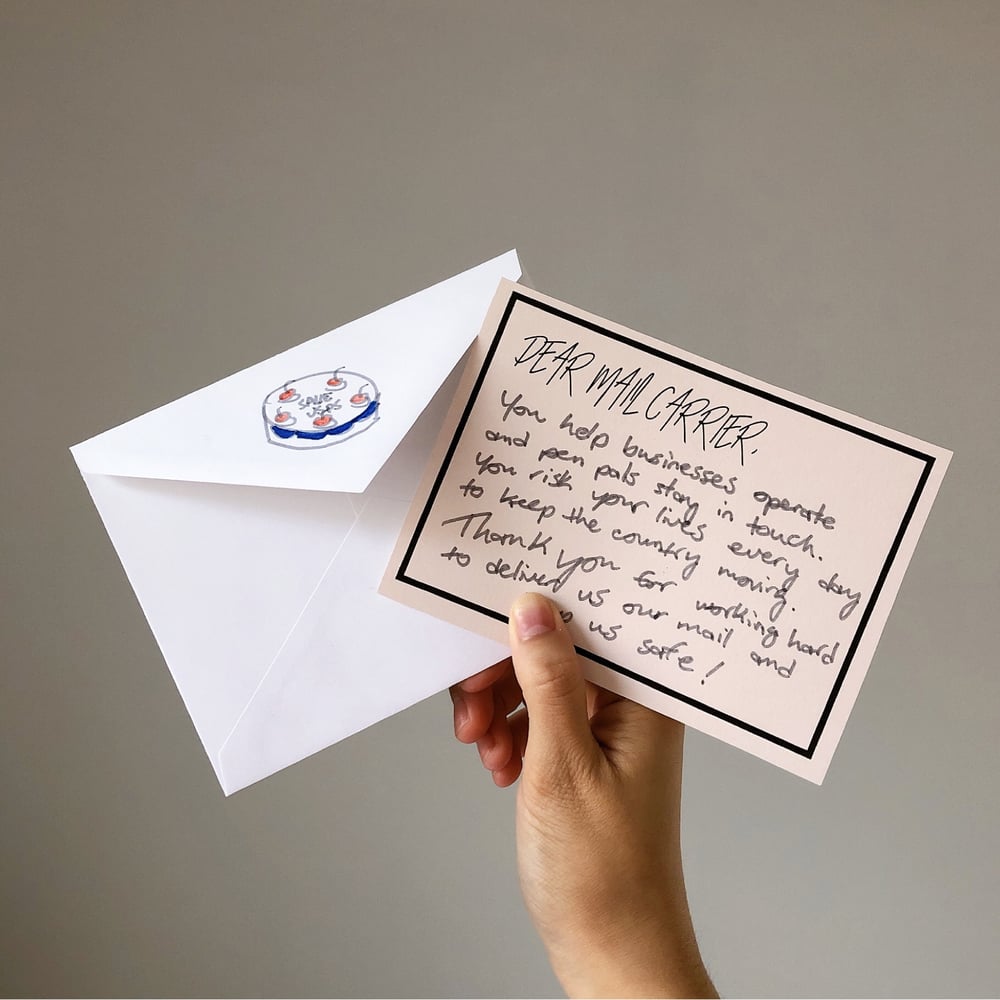 SAVE
USPS
DEAR MAIL CARRIER,
You help businesses operate
and pen pals stay in touch.
You risk your lives every day
to keep the country moving.
Thank you for working hard
to deliver us our mail and
us safe!